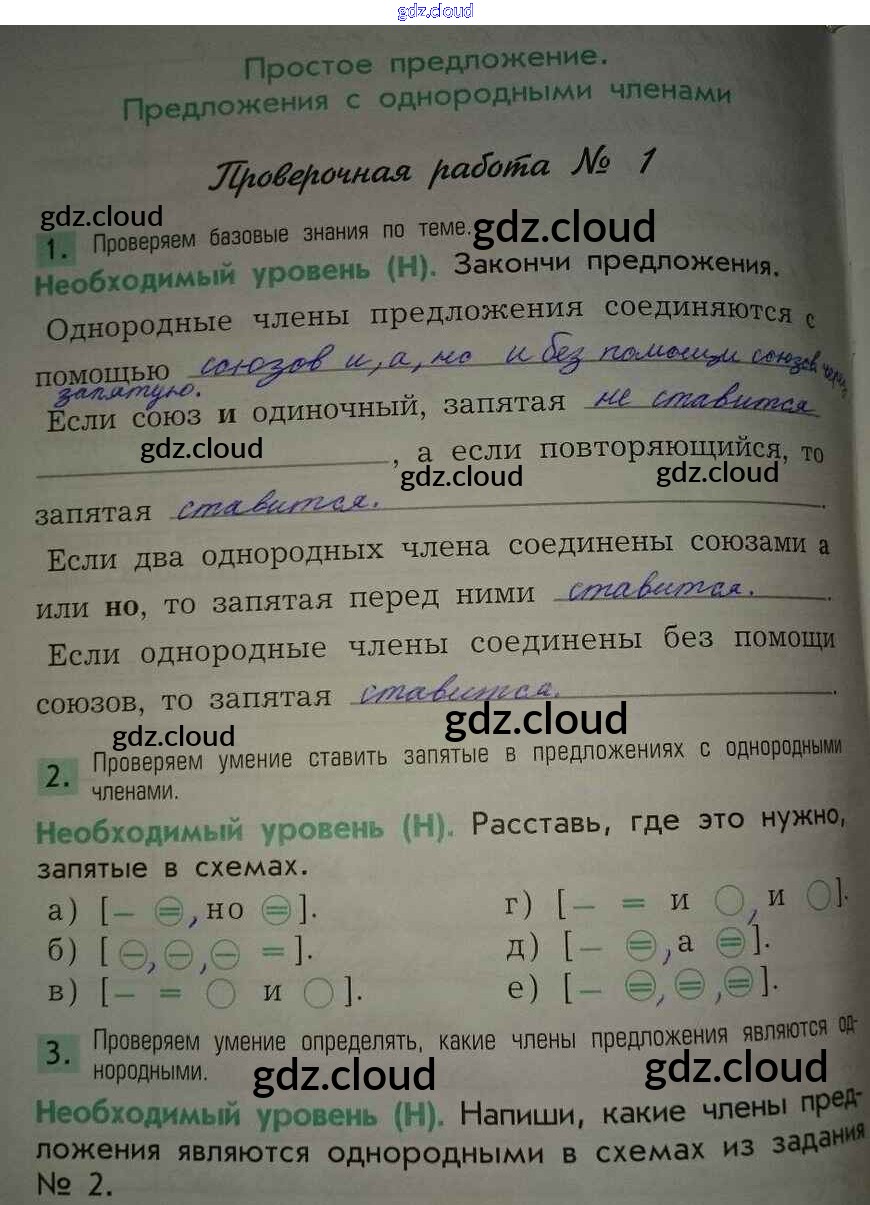 gdz.cloud
Простое предложение.
Предложения с однородными членами
Проверочная работа № 1
gdz.cloud
1. Проверяем базовые знания по теме. gdz.cloud
Необходимый уровень (Н). Закончи предложения.
Однородные члены предложения соединяются с
помощью союзов и, а, но и без помощи союзов через
запятую.
Если союз и одиночный, запятая не ставится
gdz.cloud , а если повторяющийся, то
gdz.cloud gdz.cloud
запятая ставится.
Если два однородных члена соединены союзами а
или но, то запятая перед ними ставится.
Если однородные члены соединены без помощи
союзов, то запятая ставится.
gdz.cloud gdz.cloud
2. Проверяем умение ставить запятые в предложениях с однородными
членами.
Необходимый уровень (Н). Расставь, где это нужно,
запятые в схемах.
а) [– =, но =]. г) [– = и ○, и ○].
б) [–, –, – =]. д) [– =, а =].
в) [– = ○ и ○]. е) [– =, =, =].
3. Проверяем умение определять, какие члены предложения являются од-
нородными. gdz.cloud gdz.cloud
Необходимый уровень (Н). Напиши, какие члены пред-
ложения являются однородными в схемах из задания
№ 2.